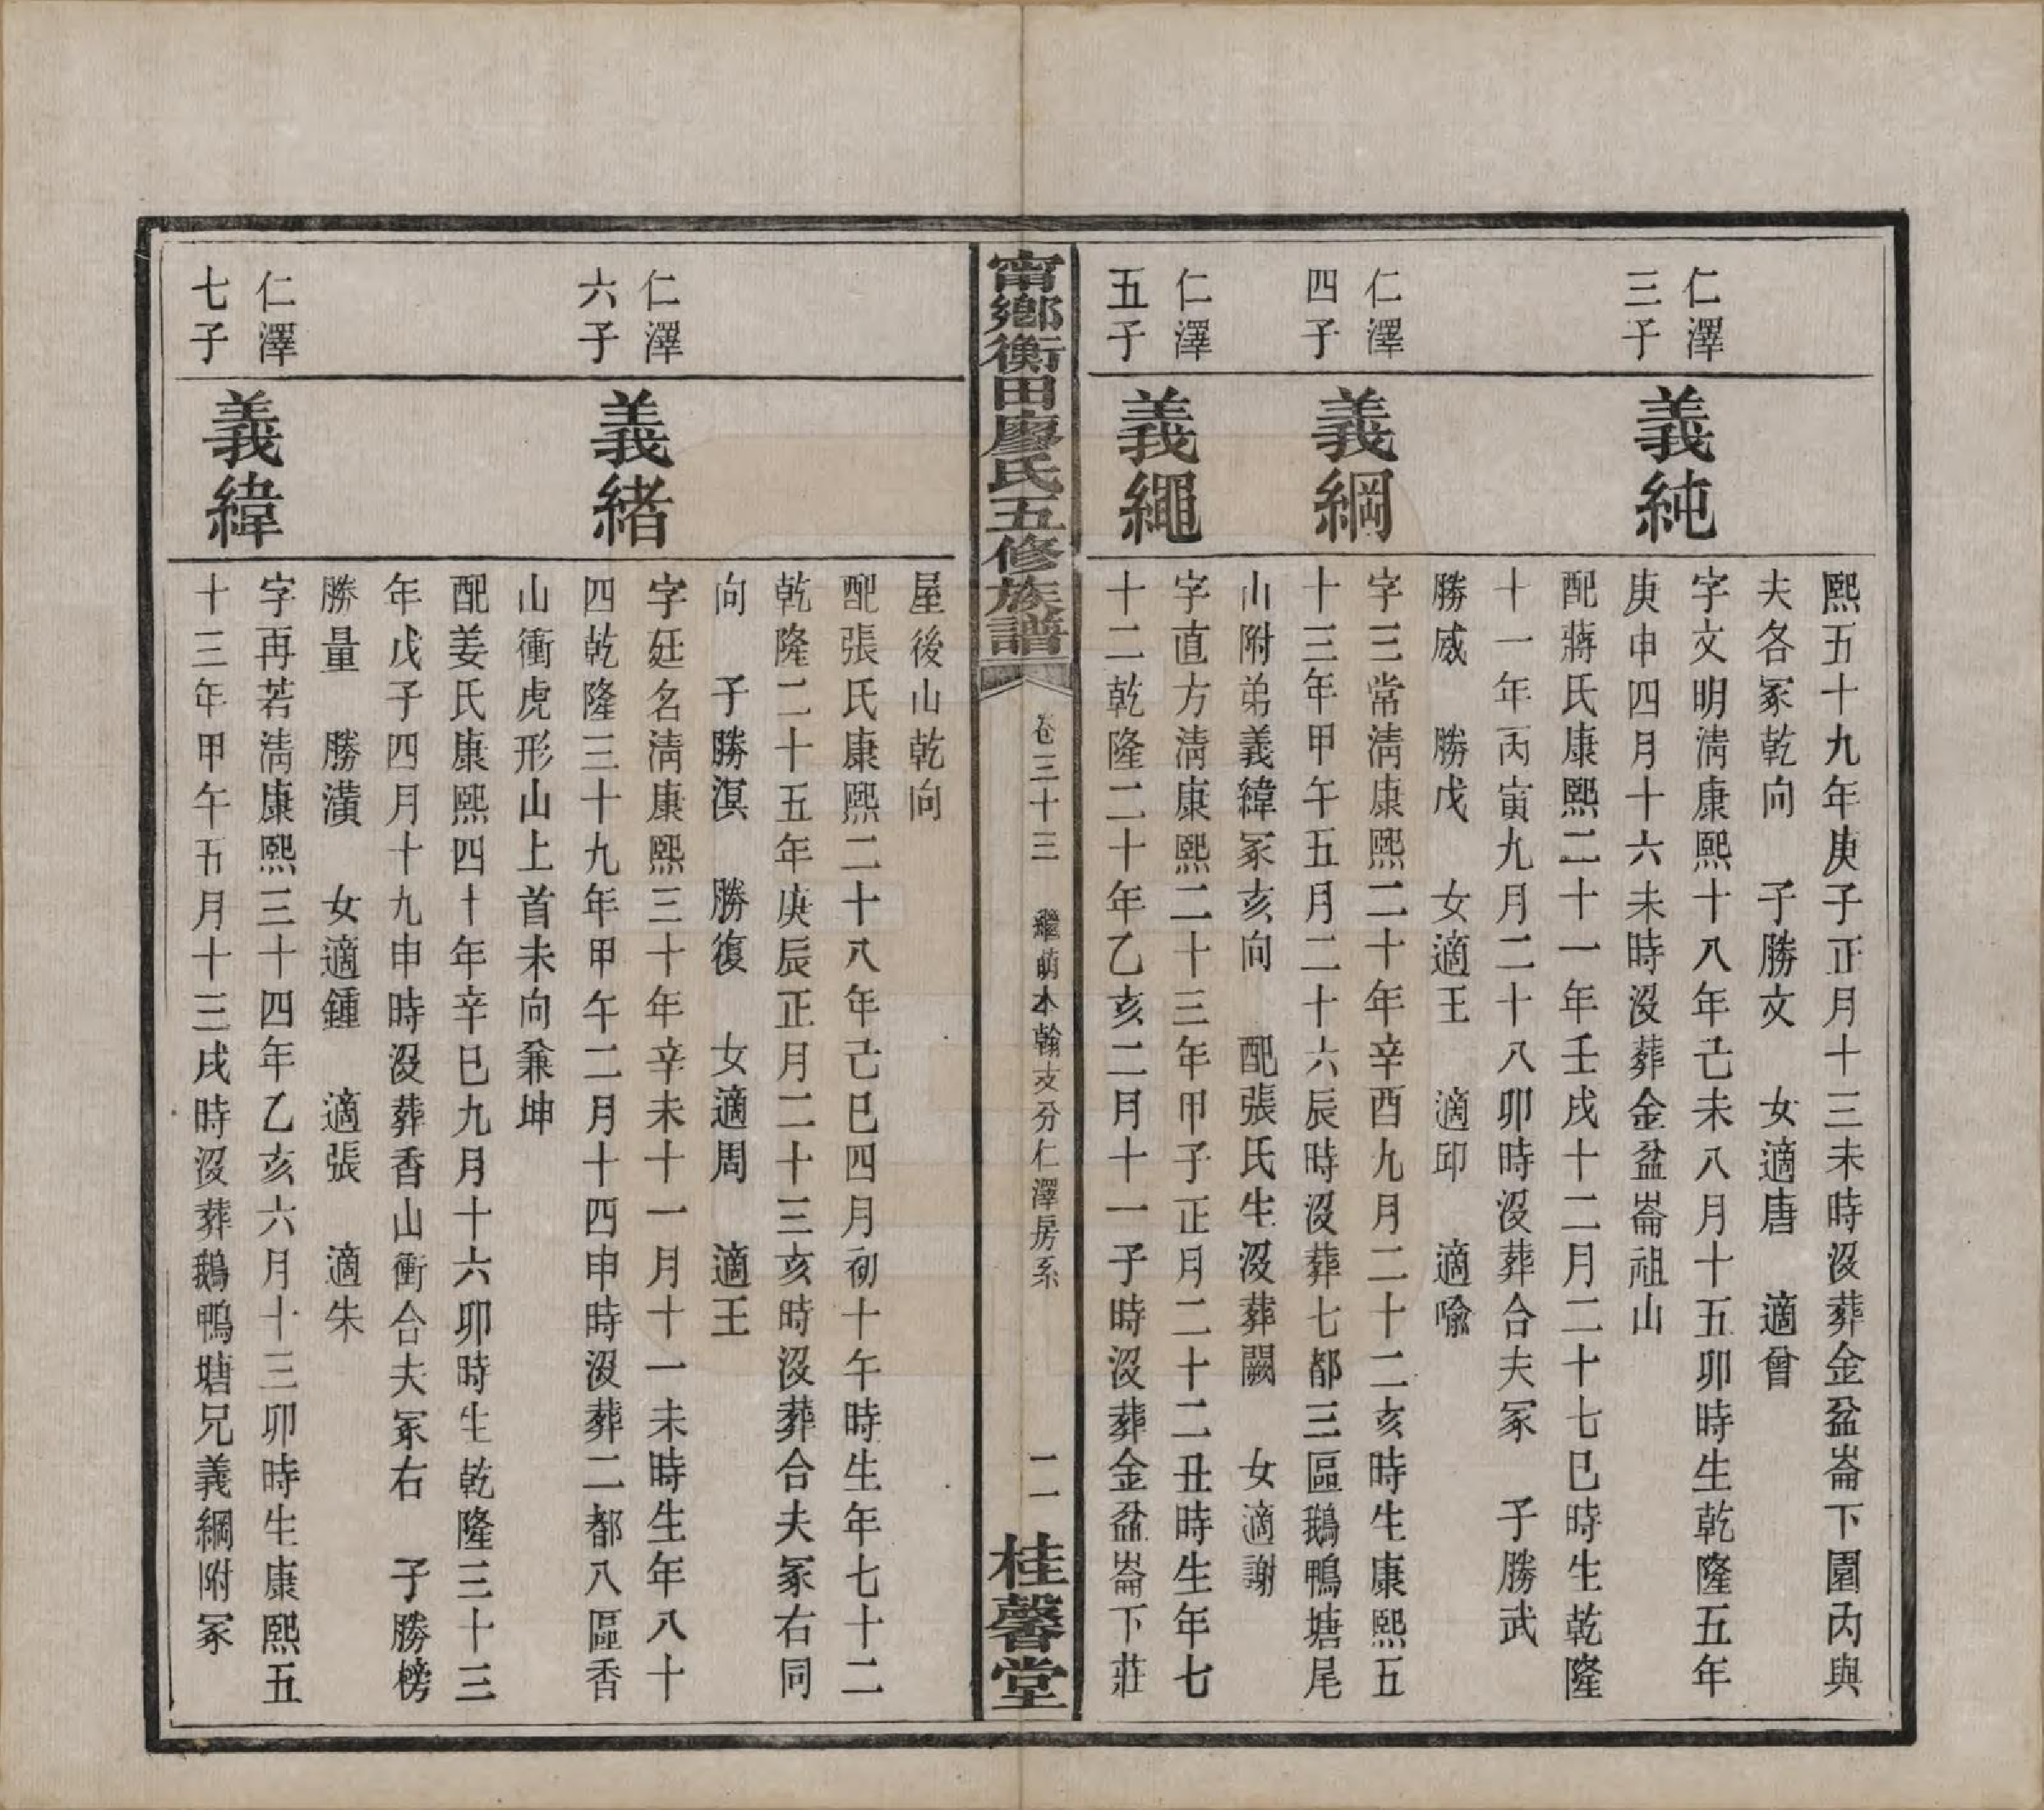 熙五十九年庚子正月十三未時沒葬金盆崙下園丙與
夫各冢乾向　子勝文　女適唐　適曾
仁澤
三子
義純
字文明淸康熙十八年己未八月十五卯時生乾隆五年
庚申四月十六未時沒葬金盆崙祖山
配蔣氏康熙二十一年壬戌十二月二十七巳時生乾隆
十一年丙寅九月二十八卯時沒葬合夫冢　子勝武
勝威　勝戊　女適王　適邱　適喩
仁澤
四子
義綱
字三常淸康熙二十年辛酉九月二十二亥時生康熙五
十三年甲午五月二十六辰時沒葬七都三區鵝鴨塘尾
山附弟義緯冢亥向　配張氏生沒葬闕　女適謝
仁澤
五子
義繩
字直方淸康熙二十三年甲子正月二十二丑時生年七
十二乾隆二十年乙亥二月十一子時沒葬金盆崙下莊
甯鄉衡田廖氏五修族譜
卷三十三　繼萌本翰支分仁澤房系　二一
桂馨堂
屋後山乾向
配張氏康熙二十八年己巳四月初十午時生年七十二
乾隆二十五年庚辰正月二十三亥時沒葬合夫冢右同
向　子勝溟　勝復　女適周　適王
仁澤
六子
義緒
字廷名淸康熙三十年辛未十一月十一未時生年八十
四乾隆三十九年甲午二月十四申時沒葬二都八區香
山衝虎形山上首未向兼坤
配姜氏康熙四十年辛巳九月十六卯時生乾隆三十三
年戊子四月十九申時沒葬香山衝合夫冢右　子勝榜
勝量　勝潢　女適鍾　適張　適朱
仁澤
七子
義緯
字再若淸康熙三十四年乙亥六月十三卯時生康熙五
十三年甲午五月十三戌時沒葬鵝鴨塘兄義綱附冢